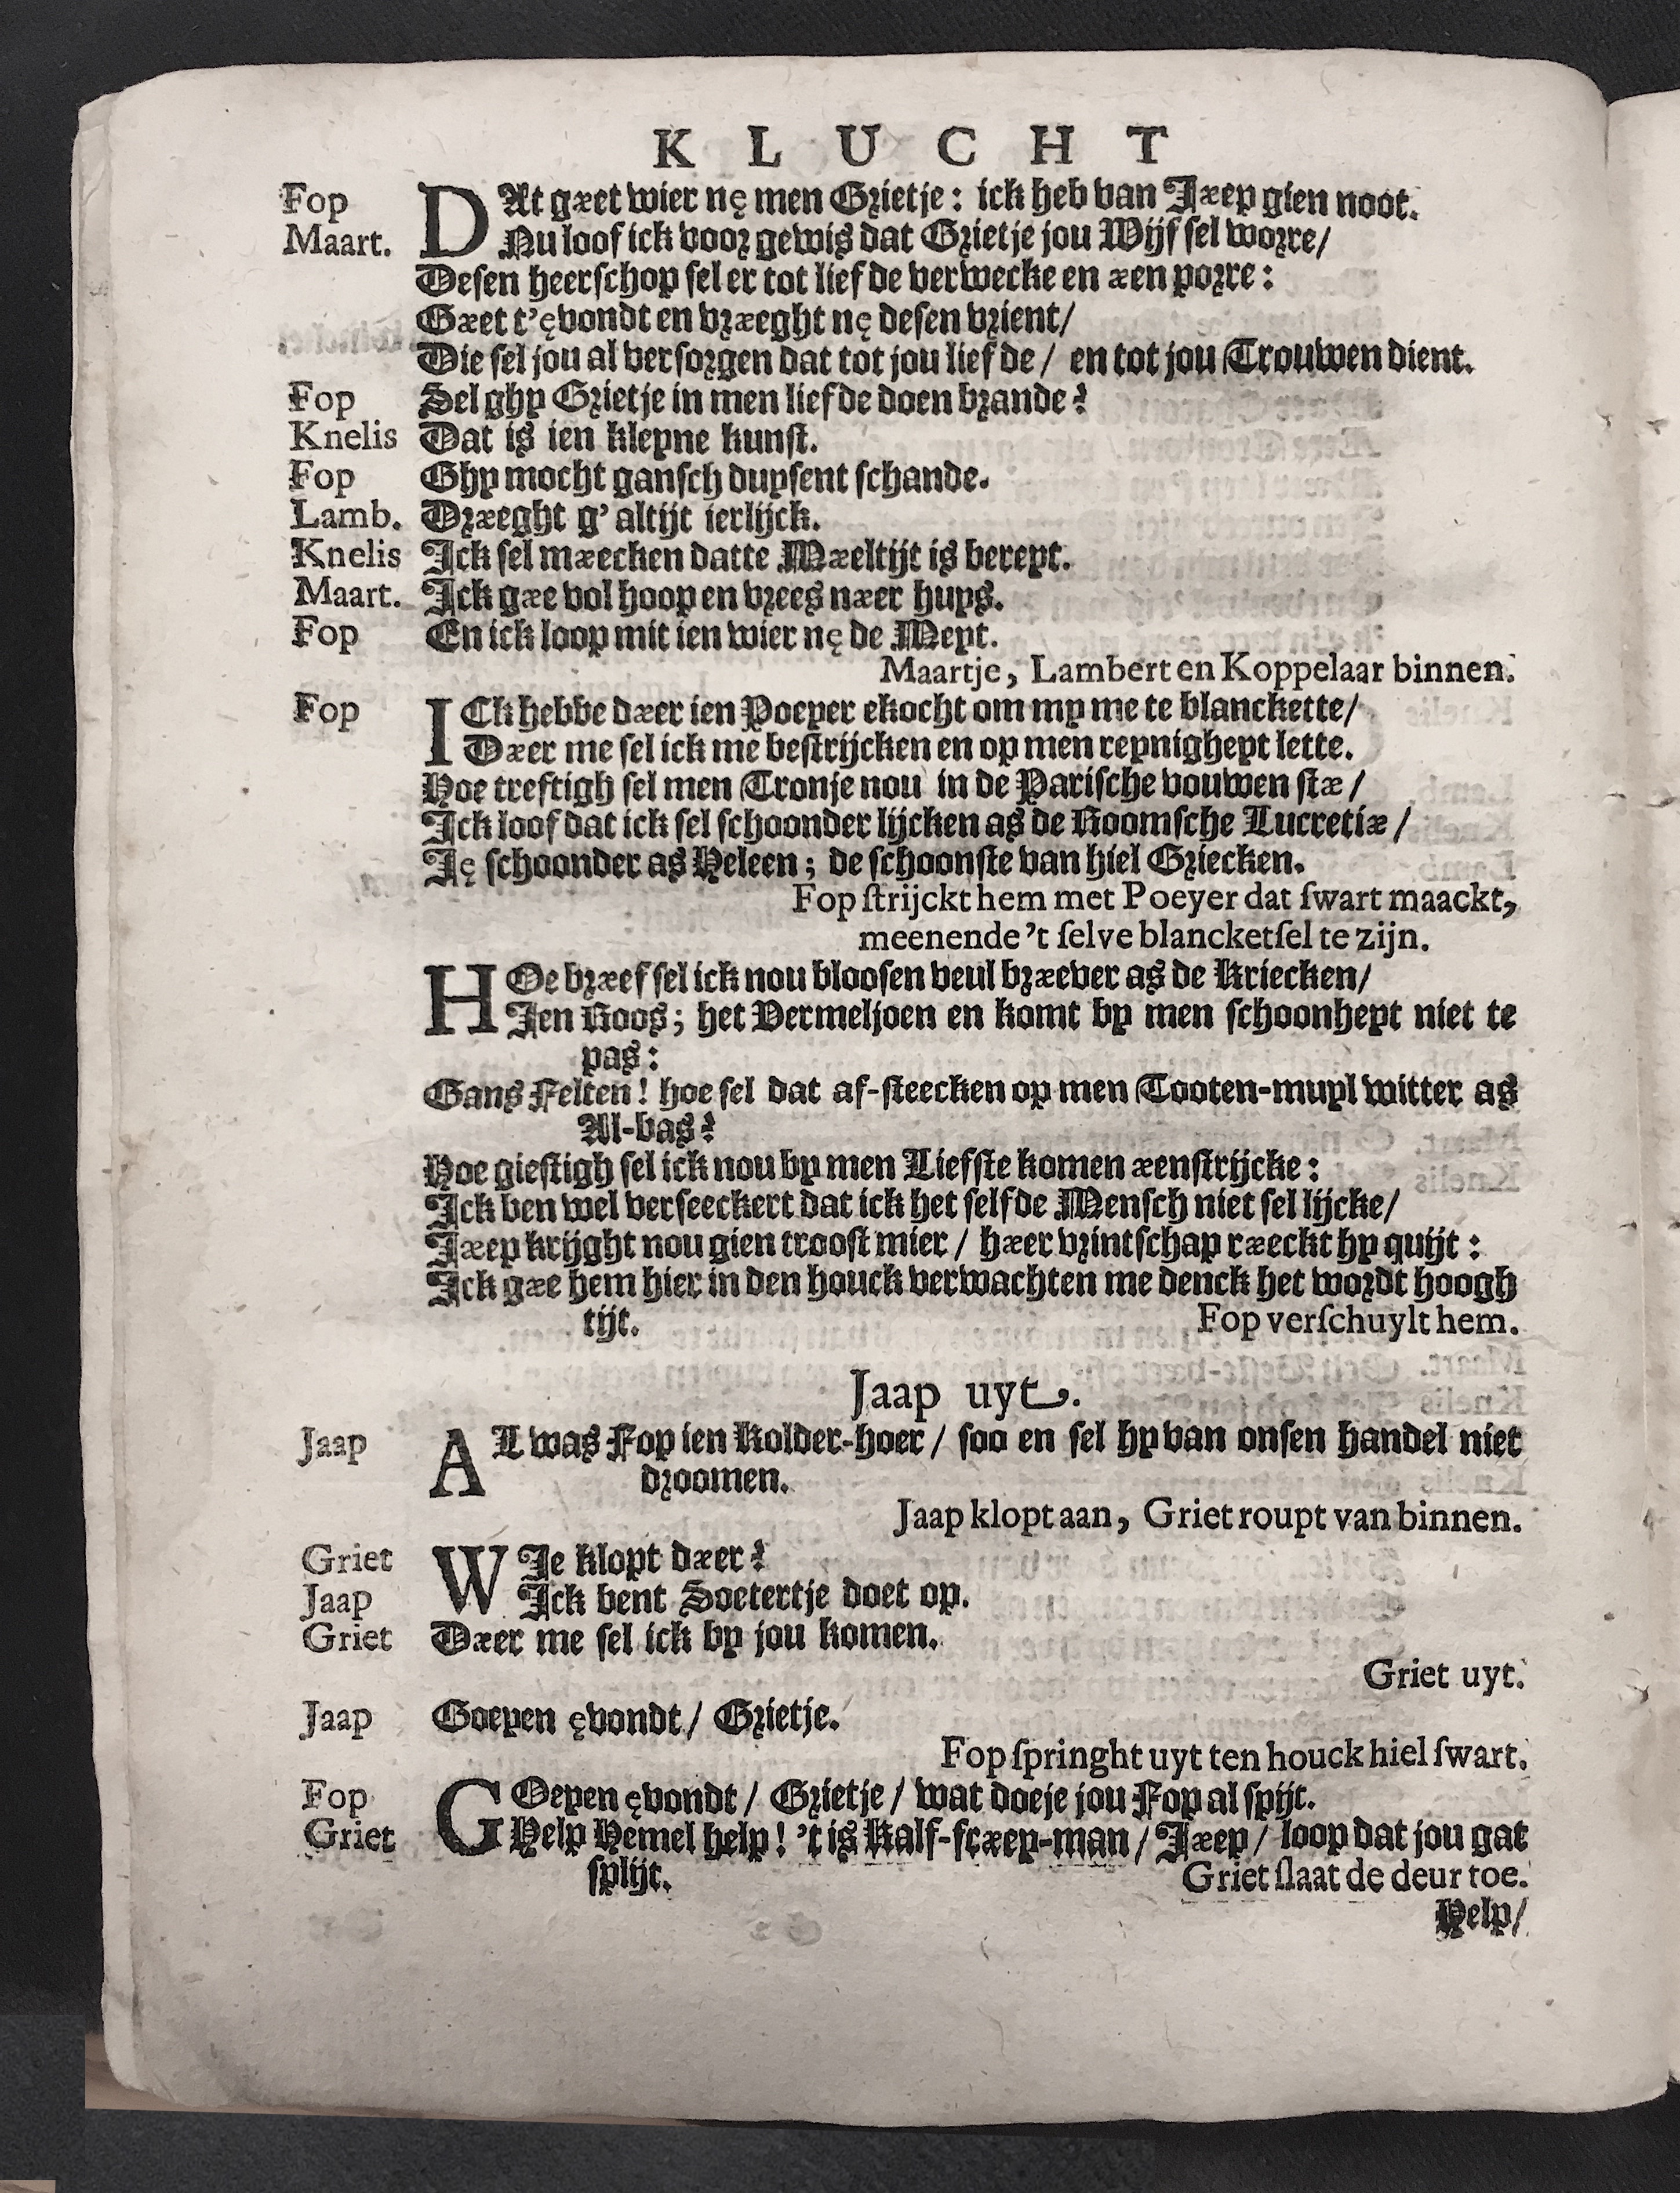 KLUCHT
Fop DAt gæet wier nę men Grietje: ick heb van Jæep gien noot.
Maart. Nu loof ick voor gewis dat Grietje jou Wijf sel worre/
Desen heerschop sel er tot liefde verwecke en æen porre:
Gæet t'ęvondt en vræeght nę desen vrient/
Die sel jou al versorgen dat tot jou liefde/ en tot jou Trouwen dient.
Fop Sel ghy Grietje in men liefde doen brande?
Knelis Dat is ien kleyne kunst.
Fop Ghy mocht gansch duysent schande.
Lamb. Dræeght g' altijt ierlijck.
Knelis Ick sel mæecken datte Mæeltijt is bereyt.
Maart. Ick gæe vol hoop en vrees næer huys.
Fop En ick loop mit ien wier nę de Meyt.
Maartje, Lambert en Koppelaar binnen.
Fop ICk hebbe dæer ien Poeyer ekocht om my me te blanckette/
Dæer me sel ick me bestrijcken en op men reynigheyt lette.
Hoe treftigh sel men Tronje nou in de Parische vouwen stæ/
Ick loof dat ick sel schoonder lijcken as de Roomsche Lucretiæ/
Ję schoonder as Heleen; de schoonste van hiel Griecken.
Fop ſtrijckt hem met Poeyer dat ſwart maackt,
meenende 't ſelve blancketſel te zijn.
HOe bræef sel ick nou bloosen veul bræever as de Kriecken/
Ien Roos; het Vermeljoen en komt by men schoonheyt niet te
pas:
Gans Felten! hoe sel dat af-steecken op men Tooten-muyl witter as
Al-bas?
Hoe giestigh sel ick nou by men Liefste komen æenstrijcke:
Ick ben wel verseeckert dat ick het selfde Mensch niet sel lijcke/
Jæep krijght nou gien troost mier/ hæer vrintschap ræeckt hy quijt:
Ick gæe hem hier in den houck verwachten me denck het wordt hoogh
tijt. Fop verſchuylt hem.
Jaap uyt.
Jaap AL was Fop ien Kolder-hoer/ soo en sel hy van onsen handel niet
droomen.
Jaap klopt aan, Griet roupt van binnen.
Griet WIe klopt dæer?
Jaap Ick bent Soetertje doet op.
Griet Dæer me sel ick by jou komen.
Griet uyt.
Jaap Goeyen ęvondt/ Grietje.
Fop ſpringht uyt ten houck hiel ſwart.
Fop GOeyen ęvondt/ Grietje/ wat doeje jou Fop al spijt.
Griet Help Hemel help! 't is Kalf-scræep-man/ Jæep/ loop dat jou gat
splijt. Griet ſlaat de deur toe.
Help/